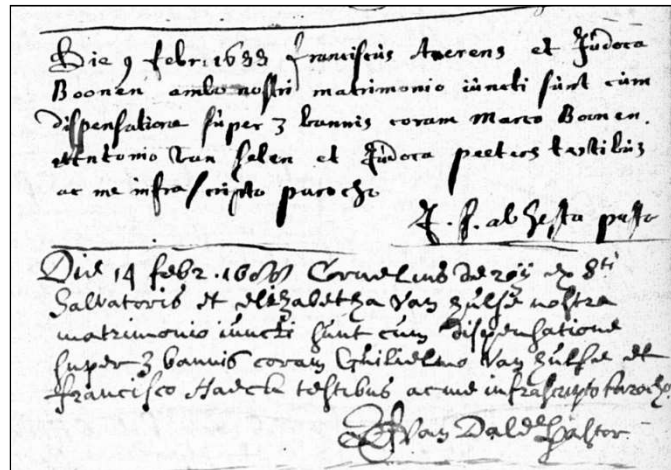 Die 9 febr. 1688 franciscus Averens et Judoca
Boonen ambo nostri matrimonio iuncti sunt cum
dispensatione super 3 bannis coram Marco Boonen.
Antonio Van Selen et Judoca peeters testibus
ac me infrascripto parocho
Die 14 febr. 1688 Cornelius De roij ex Sti
Salvatoris et elizabetha Van hulse nostra
matrimonio iuncti sunt cum dispensatione
super 3 bannis coram Guilielmo Van hulse et
francisco Haeck testibus ac me infrascripto parocho
Van Dale Pastor